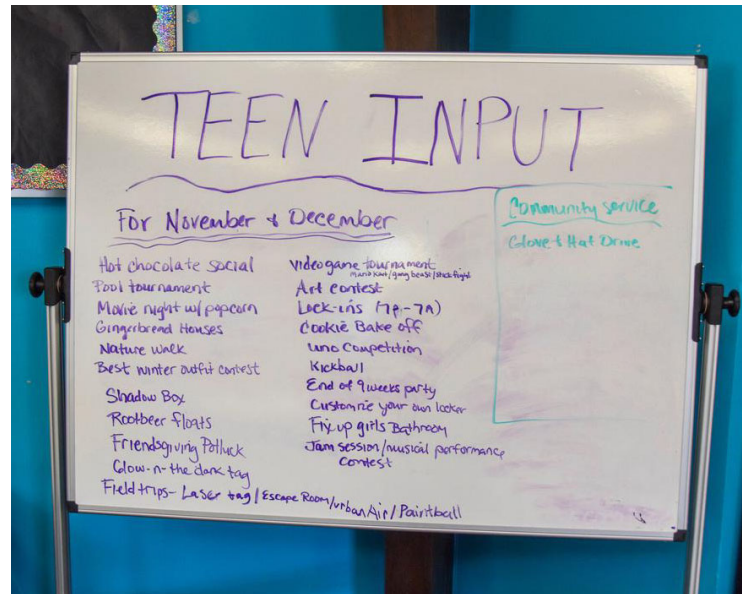 TEEN INPUT
For November & December
Hot chocolate social
Pool tournament
Movie night w/ popcorn
Gingerbread Houses
Nature walk
Best winter outfit contest
Shadow Box
Rootbeer floats
Friendsgiving Potluck
Glow-n-the dark tag
Field trips- Laser tag / Escape Room / urban Air / Paintball
Videogame tournament
Mario Kart / gang beast / stick fight
Art contest
Lock-ins (7p-7a)
Cookie Bake off
Uno Competition
Kickball
End of 9 weeks party
Customize your own locker
Fix up girls Bathroom
Jam session/musical performance
contest
Community service
Glove & Hat Drive